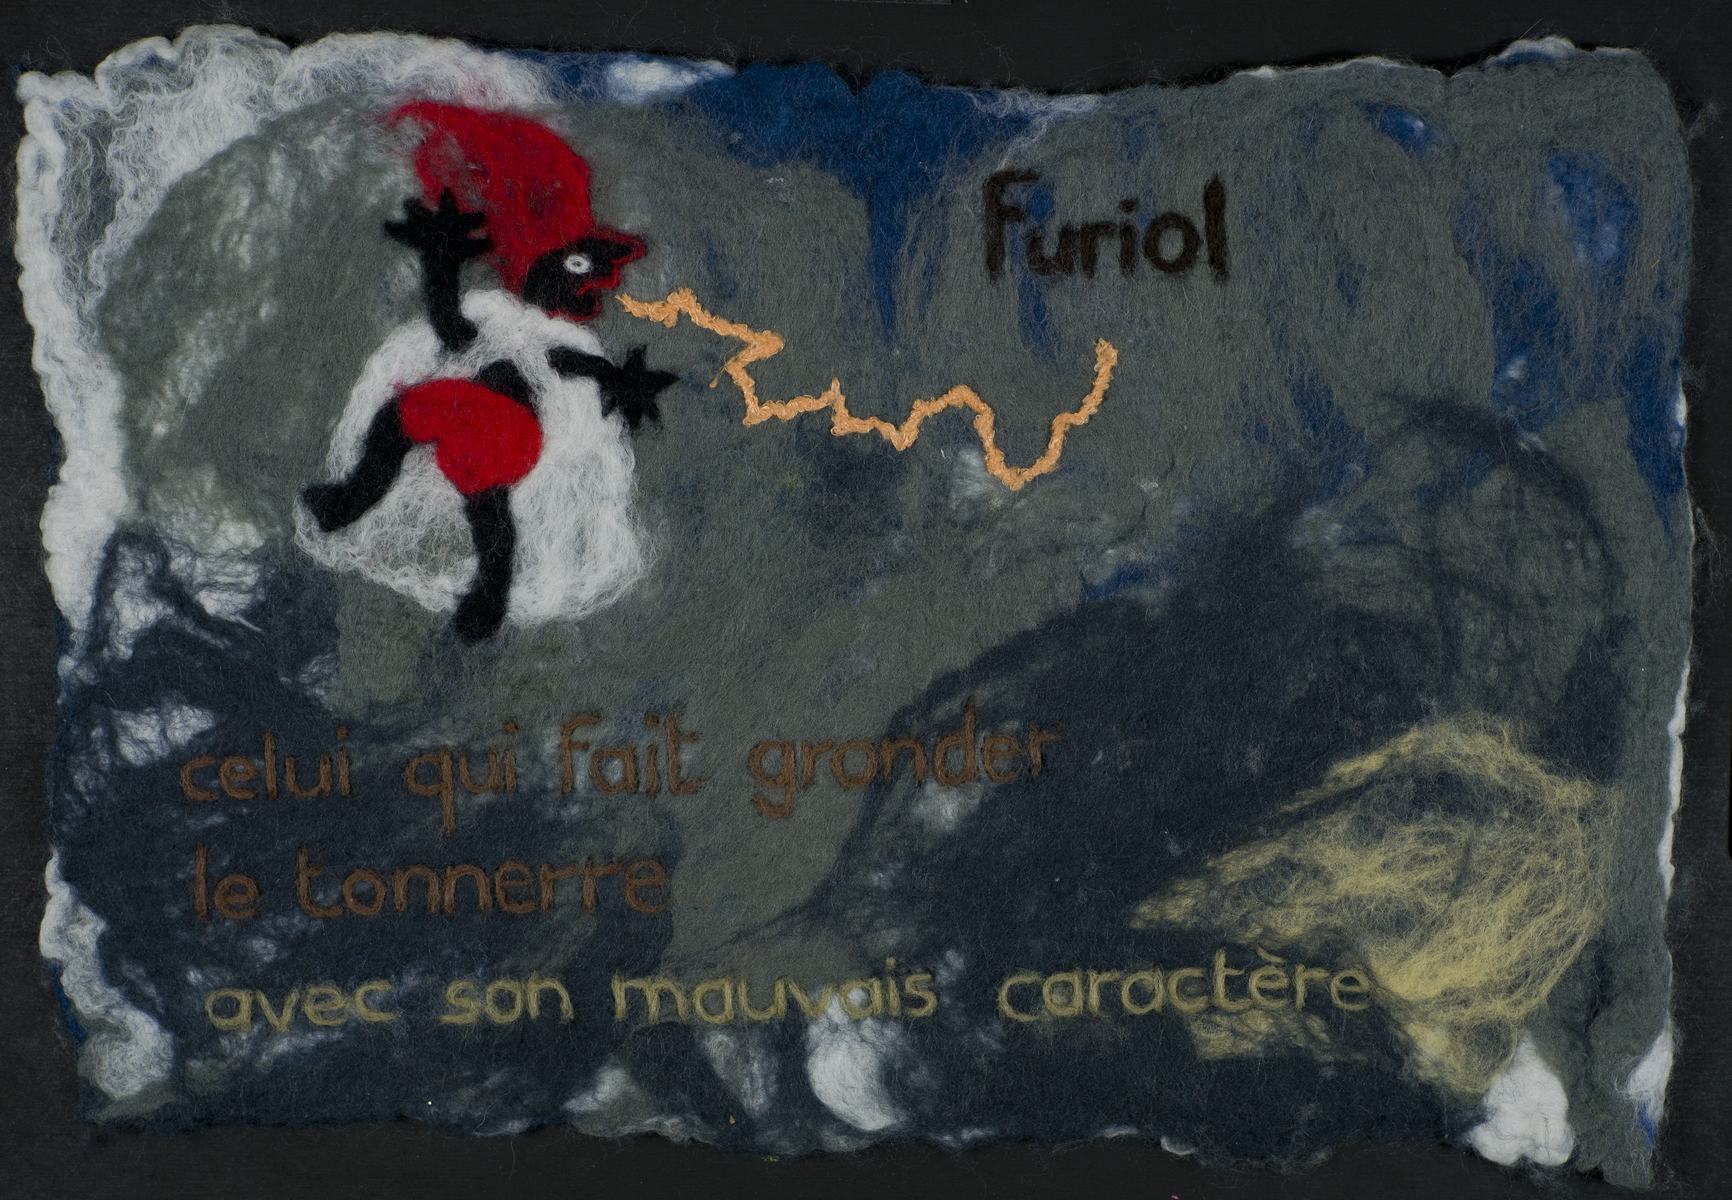 Furiol
celui qui fait gronder
le tonnerre
avec son mauvais caractère